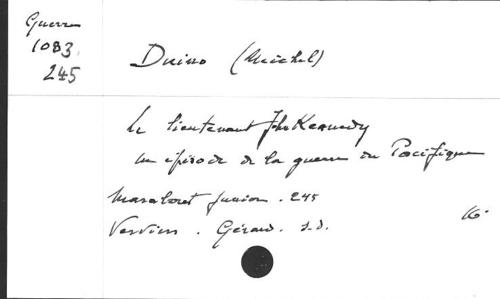 Guerre
1083.
245
Duino (Michel)
Le lieutenant John Kennedy
un épisode de la guerre du Pacifique
Marabout junior. 245
Verviers. Gérard. s.d.
16°